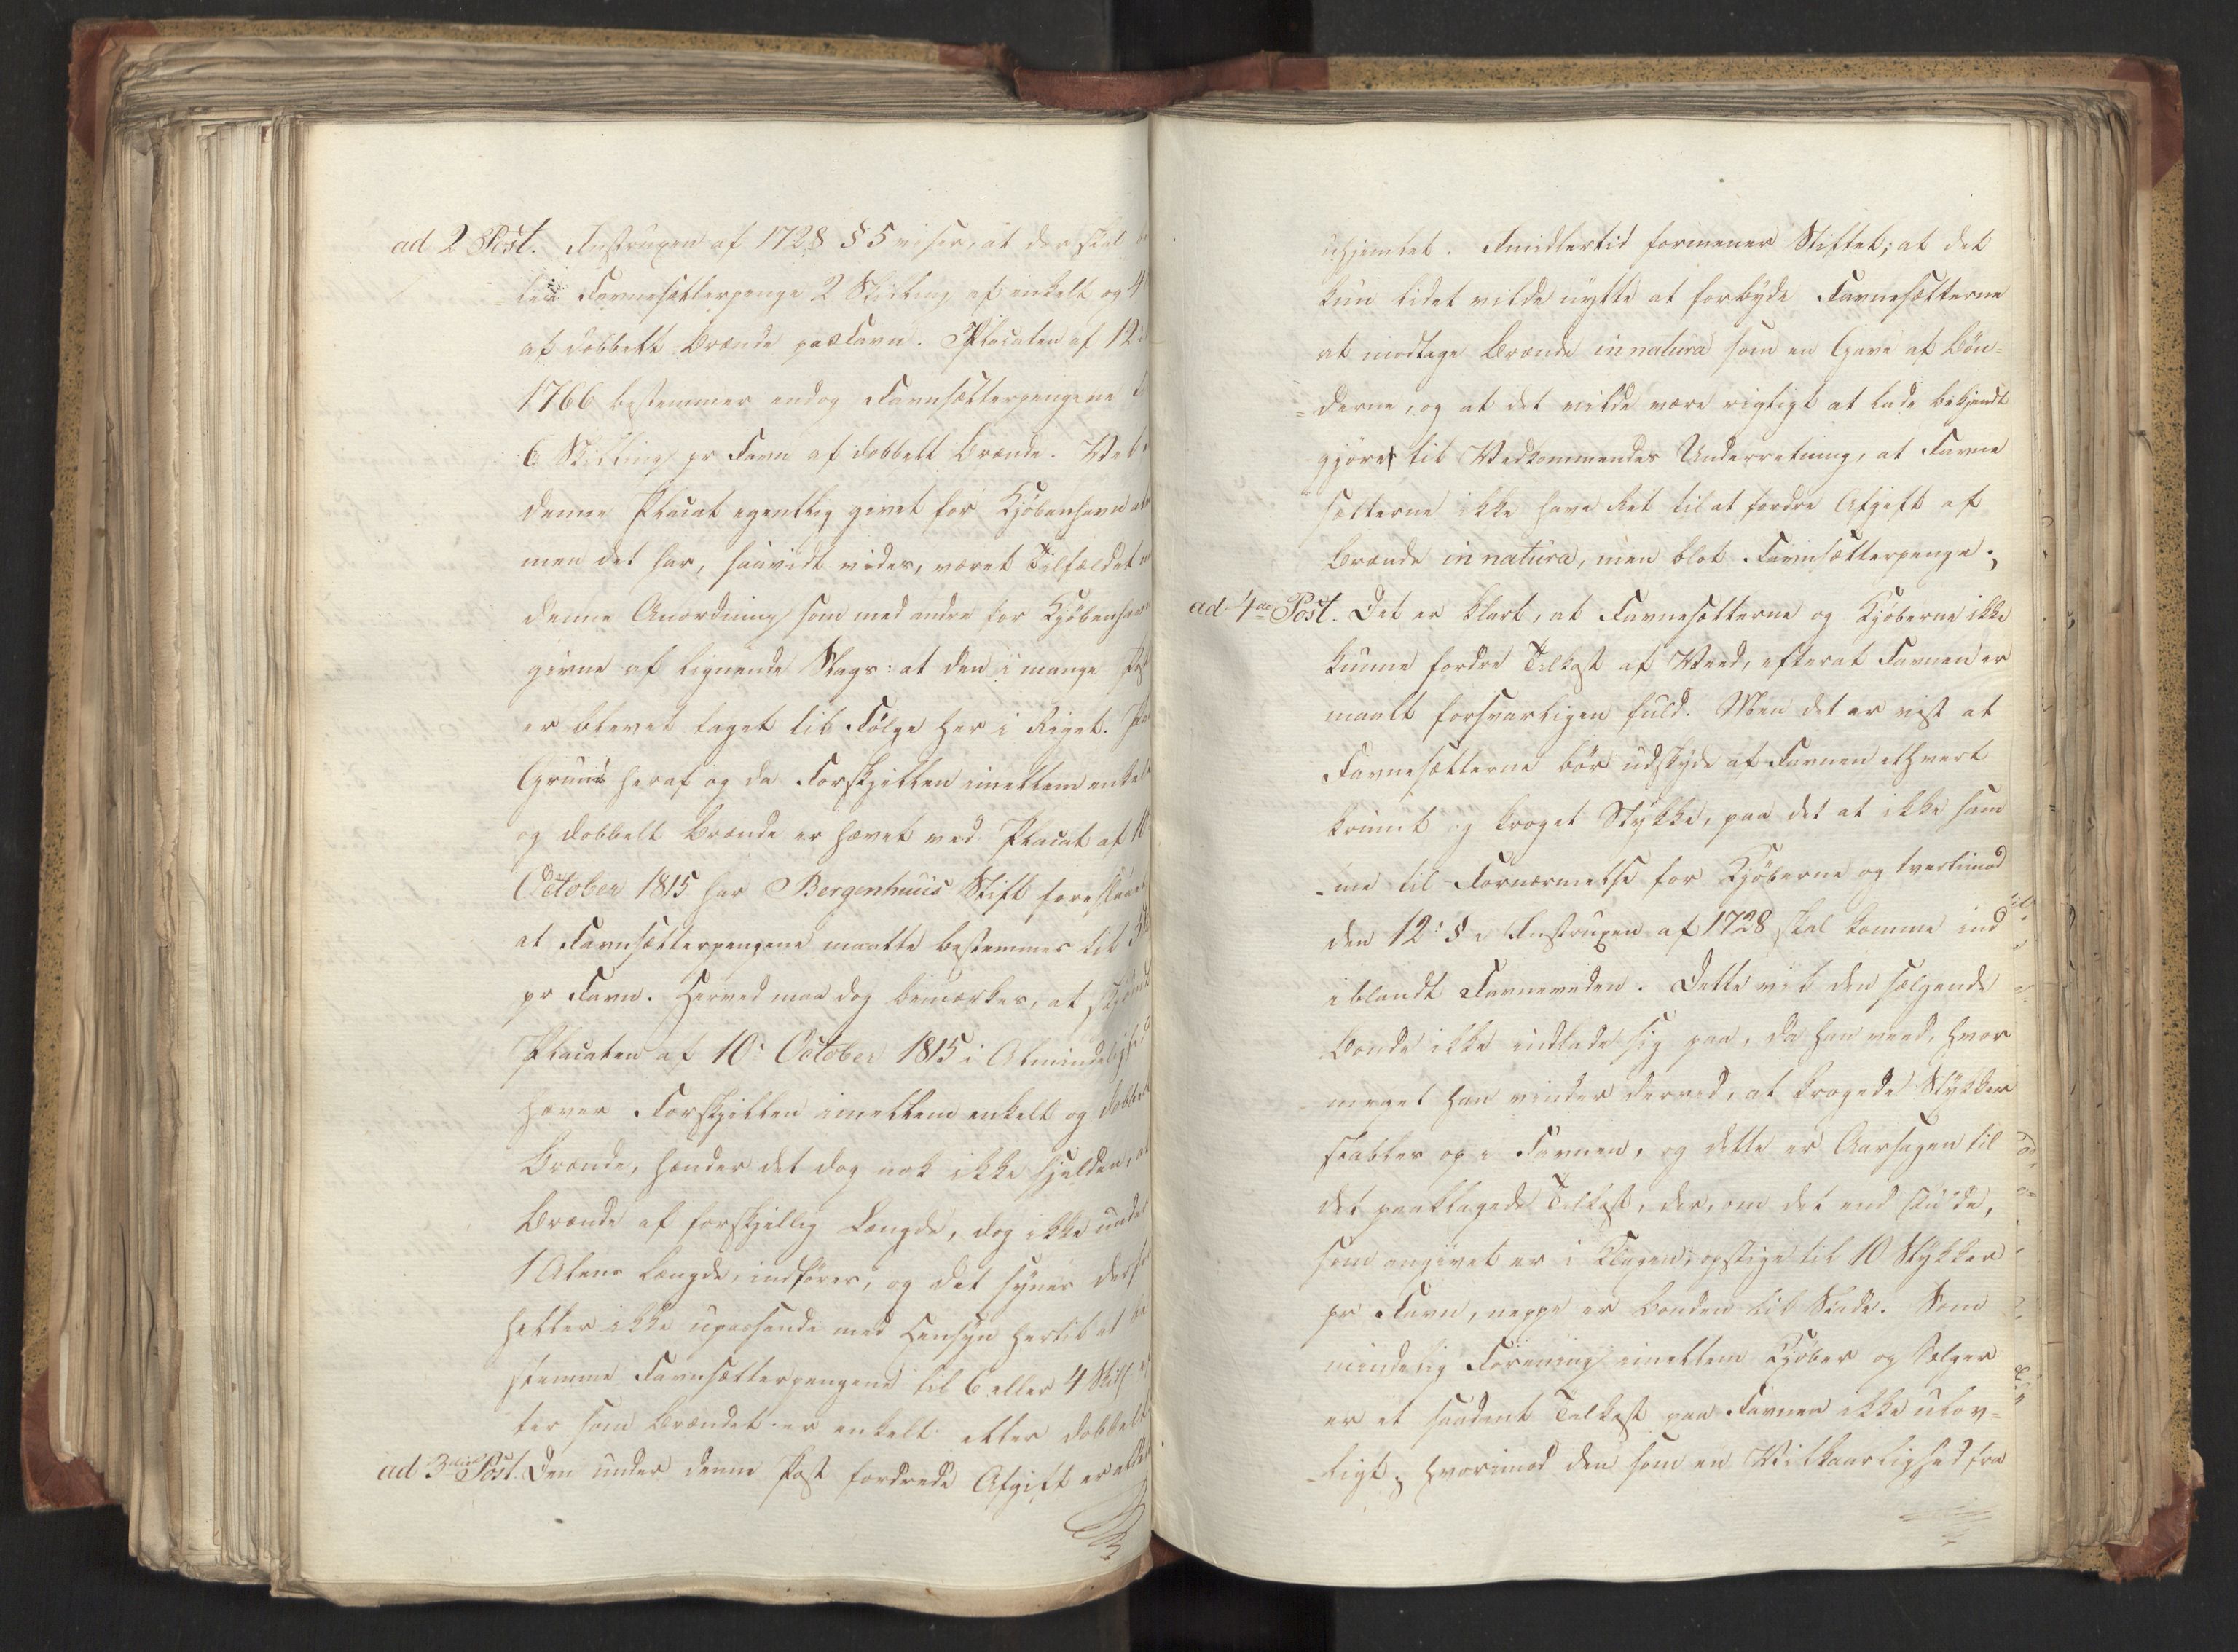 ad 2 Post. Instruxen af 1728 § 5 viser, at der skal
Favnesætterpenge 2 Skilling af enkelt og 4
af dobbelt Brænde pr Favn. Placaten af 12
1766 bestemmer endog Favnsætterpengene
6 Skilling pr Favn af dobbelt Brænde. Vel
denne Placat egentlig givet for Kjøbenhavn
men det har, saavidt vides, været Tilfældet
denne Anordning som med andre for Kjøbenhavn
givne af lignende Slags: at den i mange
er blevet taget til Følge her i Riget. Paa
Grund heraf og da Forskjellen imellem enkelt
og dobbelt Brænde er hævet ved Placat af 10
October 1815 har Bergenhuus Stift foreslaaet
at Favnsætterpengene maatte bestemmes til 5
pr Favn. Herved maa dog bemærkes, at skjøndt
Placaten af 10de October 1815 i Almindelighed
hæver Forskjellen imellem enkelt og dobbelt
Brænde, hænder det dog nok ikke sjelden, at
Brænde af forskjellig Længde, dog ikke under
1 Alens Længde, indføres, og det synes derfor
heller ikke upassende med Hensyn hertil at be
stemme Favnsætterpengene til 6 eller 4 Skill
ter som Brændet er enkelt eller dobbelt
ad 3die Post. Den under denne Post fordrede Afgift er aldeles
uhjemlet. Imidlertid formener Stiftet, at det
kun lidet vilde nytte at forbyde Favnesætterne
at modtage Brænde in natura som en Gave af Bøn=
=derne, og at det vilde være rigtigt at lade bekjendt
gjøre til Vedkommendes Underretning, at Favne
sætterne ikke have Ret til at fordre Afgift af
Brænde in natura, men blot Favnsætterpenge;
ad 4de Post. Det er klart, at Favnesætterne og Kjøberne ikke
kunne fordre Tilkast af Veed, efterat Favnen er
maalt forsvarligen fuld. Men det er vist at
Favnesætterne bør udskyde af Favnen ethvert
krumt og kroget Stykke, paa det at ikke sam
=me til Fornærmelse for Kjøberne og tvertimod
den 12te § i Instruxen af 1728 skal komme ind
iblandt Favneveden. Dette vil den sælgende
Bonde ikke indlade sig paa, da han veed, hvor
meget han vinder derved, at krogede Stykker
stables op i Favnen, og dette er Aarsagen til
det paaklagede Tilkast, der, om det end skulde,
som angivet er i Klagen, opstige til 10 Stykker
pr Favn, neppe er Bonden til Skade. Som
mindelig Forening imellem Kjøber og Sælger
er et saadant Tilkast paa Favnen ikke ulov=
=ligt; hvorimod den som en Vilkaarlighed fra